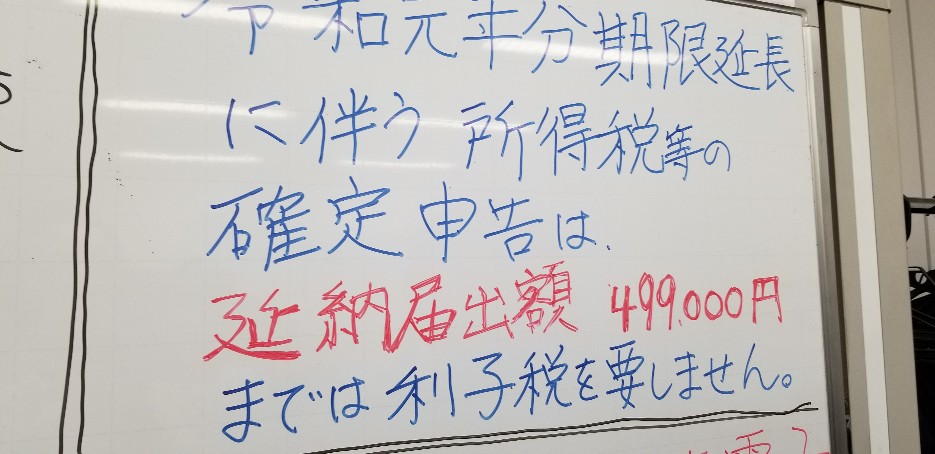 令和元年分期限延長
に伴う所得税等の
確定申告は、
延納届出額 499.000円
までは利子税を要しません。